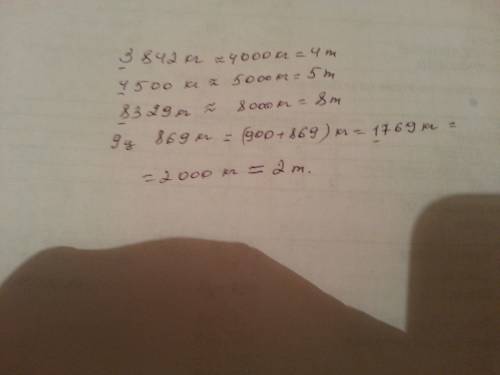 3 842 кг ≈ 4000 кг = 4 т
4 500 кг ≈ 5000 кг = 5 т
8329 кг ≈ 8000 кг = 8 т
9 ц 869 кг = (900 + 869) кг = 1769 кг =
= 2000 кг = 2 т.